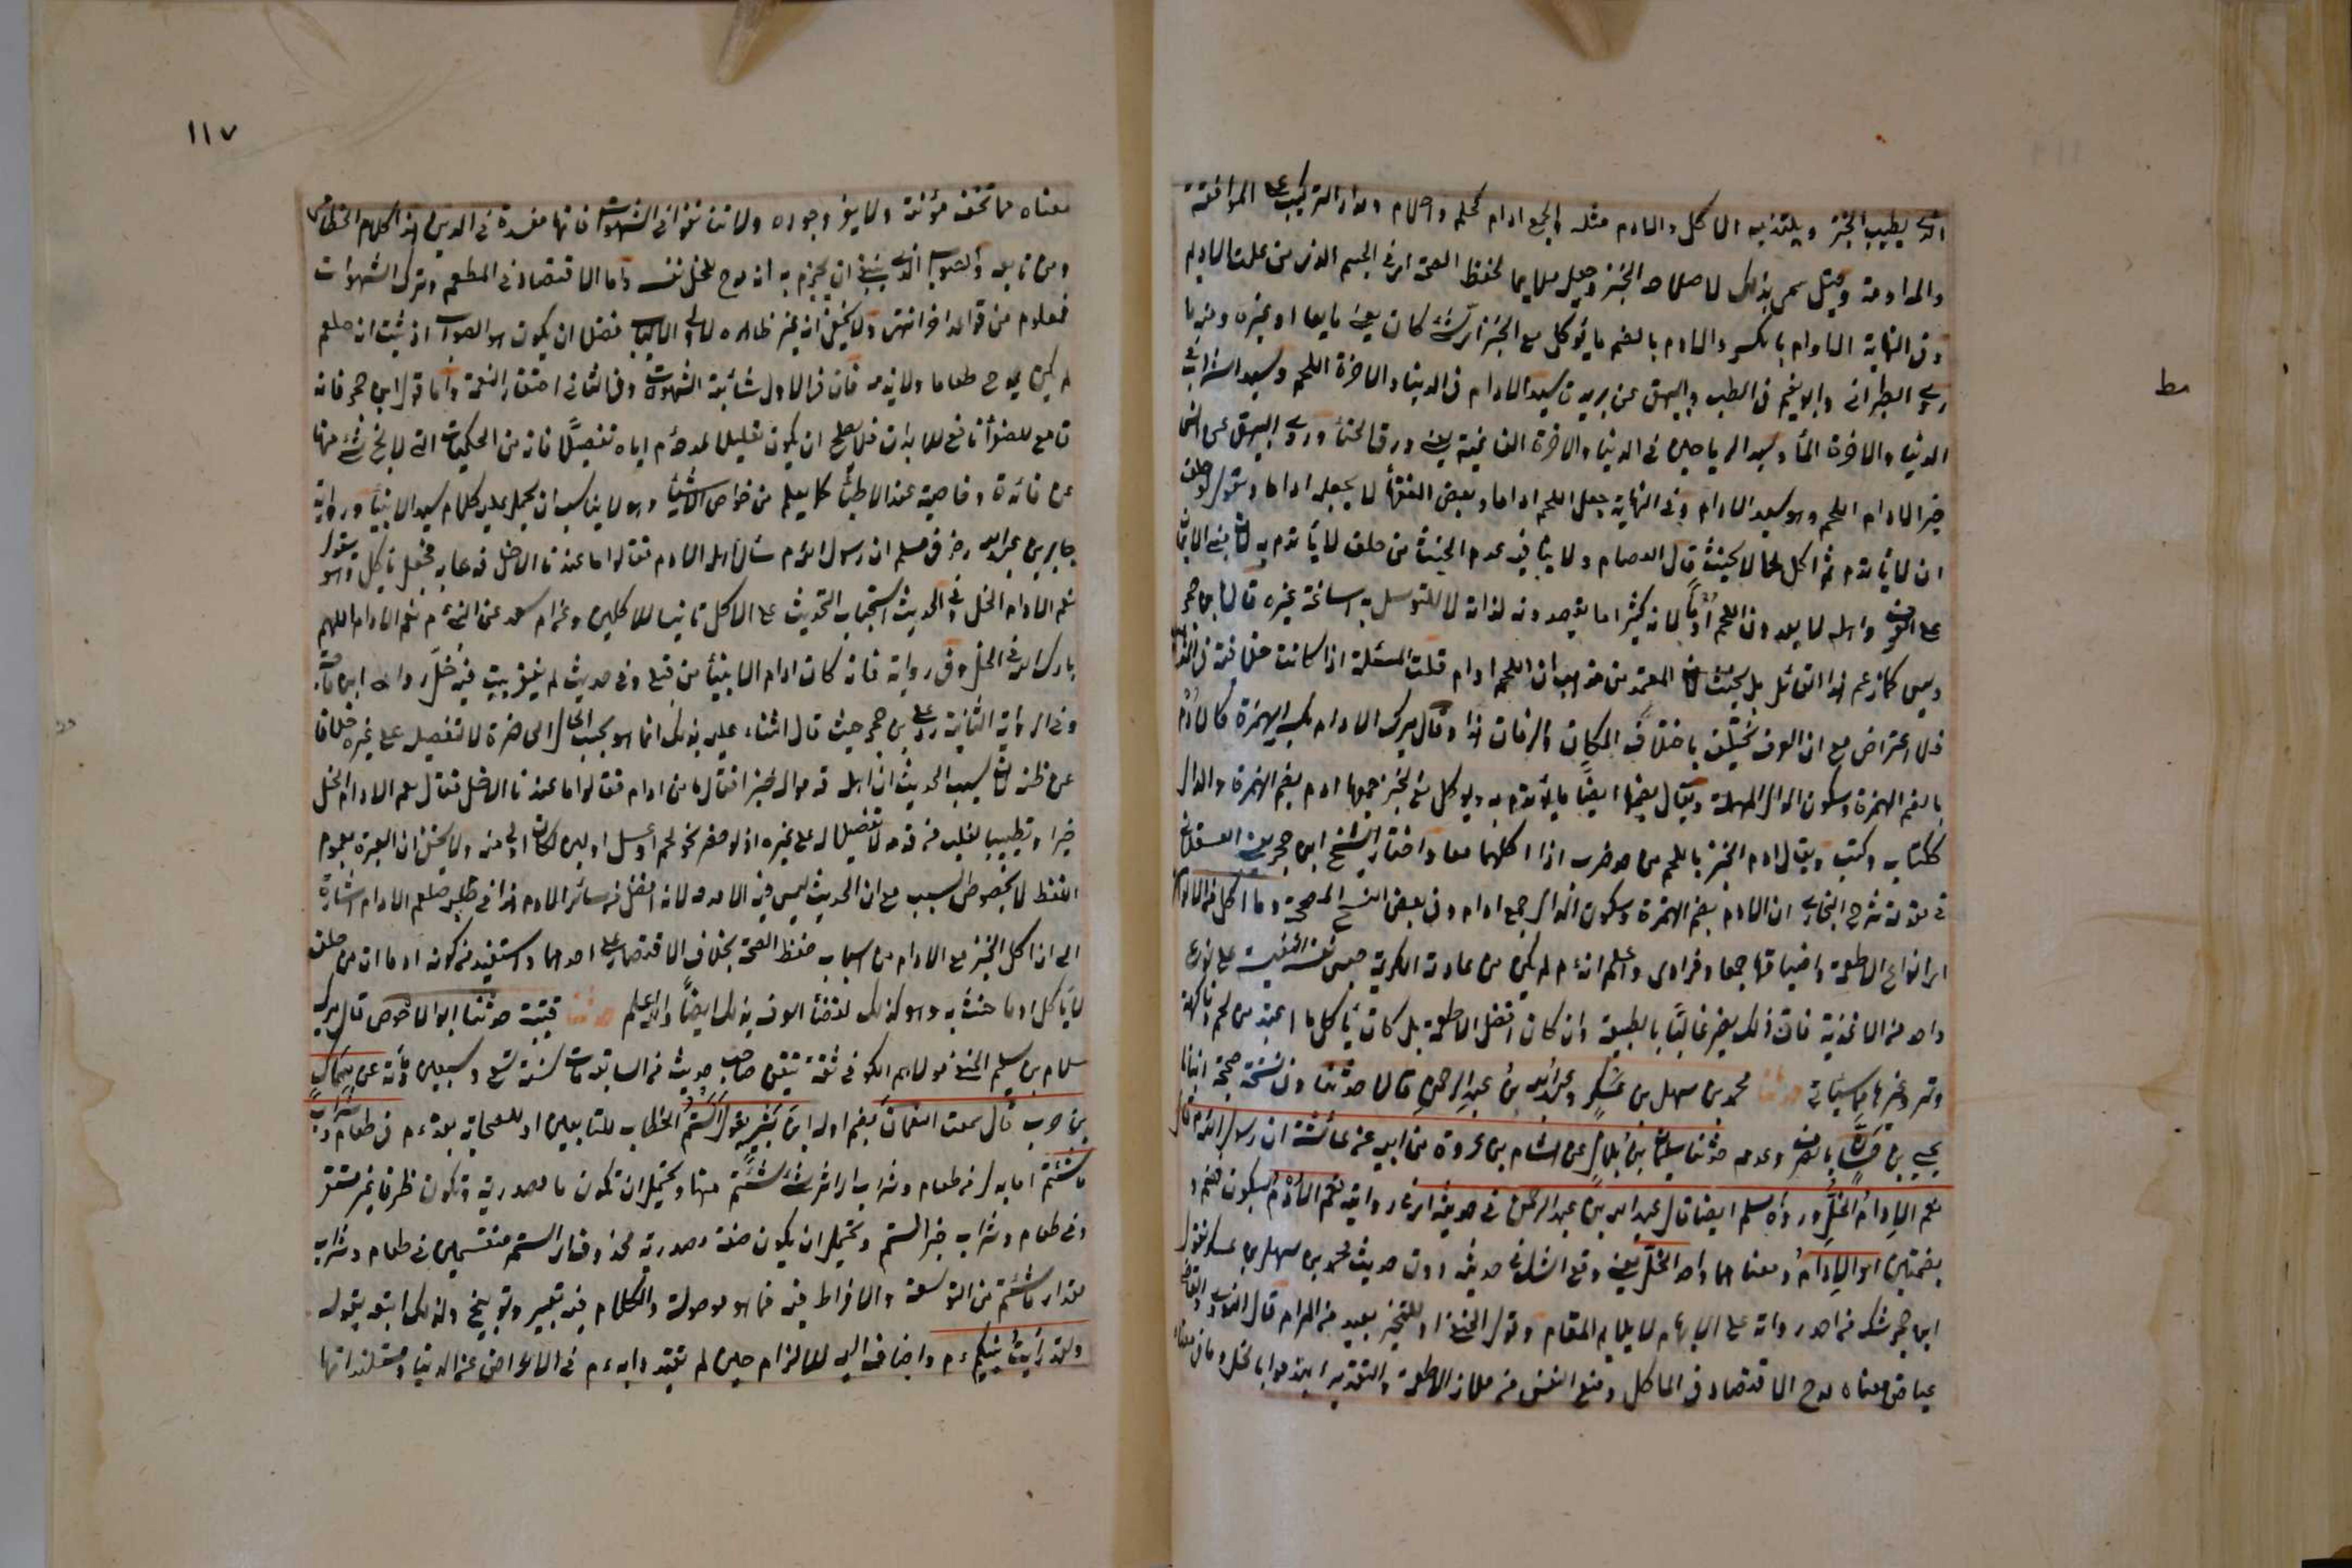 الذي يطيب الخبز ويلتذ به الاكل والادم مثله والجمع ادام كحلم واحلام ومدار التركيب على الموافقة
والملاومة وقيل سمى بذلك لاصلاحه الخبز وجعله ملايما لحفظ الصحة اى فى الجسم الذى من علت الادام
وفى النهاية الادام بالكسر والادم بالضم ما يؤكل مع الخبز اى شئ كان يعنى مايعا او غيره ومنه ما
روى الطبرانى وابو نعيم فى الطب والبيهقى عن بريدة سيد الادام فى الدنيا والاخرة اللحم وسيد الشراب فى
الدنيا والاخرة الماء وسيد الرياحين فى الدنيا والاخرة الفاغية يعنى ورق الحناء وروى البيهقى عن انس
خير الادام اللحم وهو سيد الادام وفى النهاية جعل اللحم اداما وبعض الفقهاء لا يجعله اداما ويقول لو حلف
ان لا يأتدم ثم اكل لحما لا يحنث قال العصام ولا ينافيه عدم الحنث من حلف لا يأتدم به لان مبنى الايمان
على العرف واهله لا يعدون اللحم أدما لانه كثيرا ما يقصدونه لذاته لا للتوسل به اساغة غيره قال ابن حجر
وليس كما زعم هذا القائل بل يحنث لان المعتمد من مذهبه ان اللحم ادام قلت المسئلة اذا كانت خلافية فى المذهب
فلا اعتراض مع ان العرف يختلف باختلاف المكان والزمان هذا وقال ميرك الادام بكسر الهمزة كالأدم
بالضم الهمزة وسكون الدال المهملة ويقال بضمها ايضا ما يؤتدم به ويؤكل مع الخبز جمعها ادم بضم الهمزة والدال
ككتاب وكتب ويقال ادم الخبز باللحم من حد ضرب اذا اكلهما معا واختار الشيخ ابن حجر يعنى العسقلانى
فى مقدمة شرح البخارى ان الادم بضم الهمزة وسكون الدال جمع ادام وفى بعض النسخ المصححة وما اكل من الالوان
اى انواع الاطعمة واضيافها جمعا وفرادى واعلم انه ءم لم يكن من عادته الكريمة حبس نفسه النفيسة على نوع
واحد من الاغذية فان ذلك يضر غالبا بالطبيعة وان كان افضل الاطعمة بل كان يأكل ما اعتيد من لحم وفاكهة
وتمر وغيرها مما سيأتى حدثنا محمد بن سهل بن عسكر وعبد الله بن عبد الرحمن قالا حدثنا وفى نسخة صحيحة انبانا
يحيى بن حسان بالصرف وعدمه حدثنا سليمان بن بلال عن هشام بن عروة عن ابيه عن عائشة ان رسول الله ءم قال
نعم الإدام الخل ورواه مسلم ايضا قال عبد الله بن عبد الرحمن فى حديثه اى فى روايته نعم الأدم بسكون وضم
بضمتين او الإدام ومعناهما واحد الخل يعنى وقع الشك فى حديثه دون حديث محمد بن سهل بن عسكر فقول
ابن حجر شك من احد رواته على الابهام لا يلايم المقام وقول الحنفى او للتخيير بعيد من المرام قال النووى والقاضى
عياض معناه مدح الاقتصاد فى المأكل ومنع النفس من ملاذ الاطعمة والتقدير ائتدموا بالخل وما فى معناه
مط
١١٧
معناه مما تخف مؤنته ولا يعز وجوده ولا تتأنقوا فى الشهوات فانها مفسدة فى الدين هذا كلام الخطابى
ومن تابعه والصواب الذى ينبغى ان يجزم به انه مدح للخل نفسه واما الاقتصاد فى المطعم وترك الشهوات
فمعلوم من قواعد اخر انتهى ولا يخفى انه غير ظاهر لاولى الالباب فضلا ان يكون هو الصواب اذ ثبت ان صلعم
لم يكن يمدح طعاما ولا يذمه فان فى الاول شائبة الشهوة وفى الثانى احتقار النعمة واما قول ابن حجر فانه
قامع للصفراء نافع للابدان فلا يصلح ان يكون تعليلا لمدحه ءم اياه تفضيلا فانه من الحكميات التى لا يخ شئ منها
عن فائدة وخاصية عند الاطباء كما يعلم من خواص الاشياء وهو لا يناسب ان يحمل عليه كلام سيد الانبياء ورواية
جابر بن عبد الله رض فى مسلم ان رسول الله ءم سأل اهله الادم فقالوا ما عندنا الا خل فدعا به فجعل يأكل وهو يقول
نعم الادام الخل وفى الحديث استحباب التحديث على الاكل تانيسا للاكلين وعن ام سعد عن النبى ءم نعم الادام اللهم
بارك الله فى الخل وفى رواية فانه كان ادام الانبياء من قبلى وفى حديث لم يفقر بيت فيه خل رواه ابن ماجة
وفى الرواية الثانية رد على بن حجر حيث قال الثناء عليه بذلك انما هو بحسب الحال الحاضرة لا تفضيله على غيره خلافا
عن ظنه لان سبب الحديث ان اهله قدموا له خبزا فقال اما من ادام فقالوا ما عندنا الا خل فقال نعم الادام الخل
خبرا وتطييبا لقلب من قدمه لا تفضيلا له على غيره اذ لو حضر نحو لحم او عسل او لبن لكان اولى منه ولا يخفى ان العبرة بعموم
اللفظ لا بخصوص السبب مع ان الحديث ليس فيه الا مدحه لا انه افضل من سائر الادم هذا وفى طلبه صلعم الادام اشارة
الى ان اكل الخبز مع الادام من اسباب حفظ الصحة بخلاف الاقتصار على احدهما واستفيد من كونه ادما ان من حلف
لا يأكل ادما حنث به وهو كذلك لقضاء العرف بذلك ايضا والله اعلم حدثنا قتيبة حدثنا ابو الاحوص قال ميرك
سلام بن سليم الحنفى مولاهم الكوفى ثقة متقن صاحب حديث من السابعة مات سنة تسع وسبعين ومأة عن سماك
بن حرب قال سمعت النعمان بضم اوله ابن بشير يقول ألستم الخطاب للتابعين او للصحابة بعده ءم فى طعام وشراب
ما شئتم اى ما به من طعام وشراب اى اى شئ شئتم منهما ويحتمل ان تكون ما مصدرية وتكون ظرفا غير مستقر
وفى طعام وشراب خبر الستم ويحتمل ان يكون صفة مصدرية محذوف اى الستم منغمسين فى طعام وشراب
مقدار ما شئتم من التوسعة والافراط فيه فما هو موصولة والكلام فيه تعيير وتوبيخ ولذلك اتبعه بقوله
ولقد رأيت نبيكم ءم واضافه اليهم للالزام حين لم يقتدوا به ءم فى الاعراض عن الدنيا ومستلذاتها